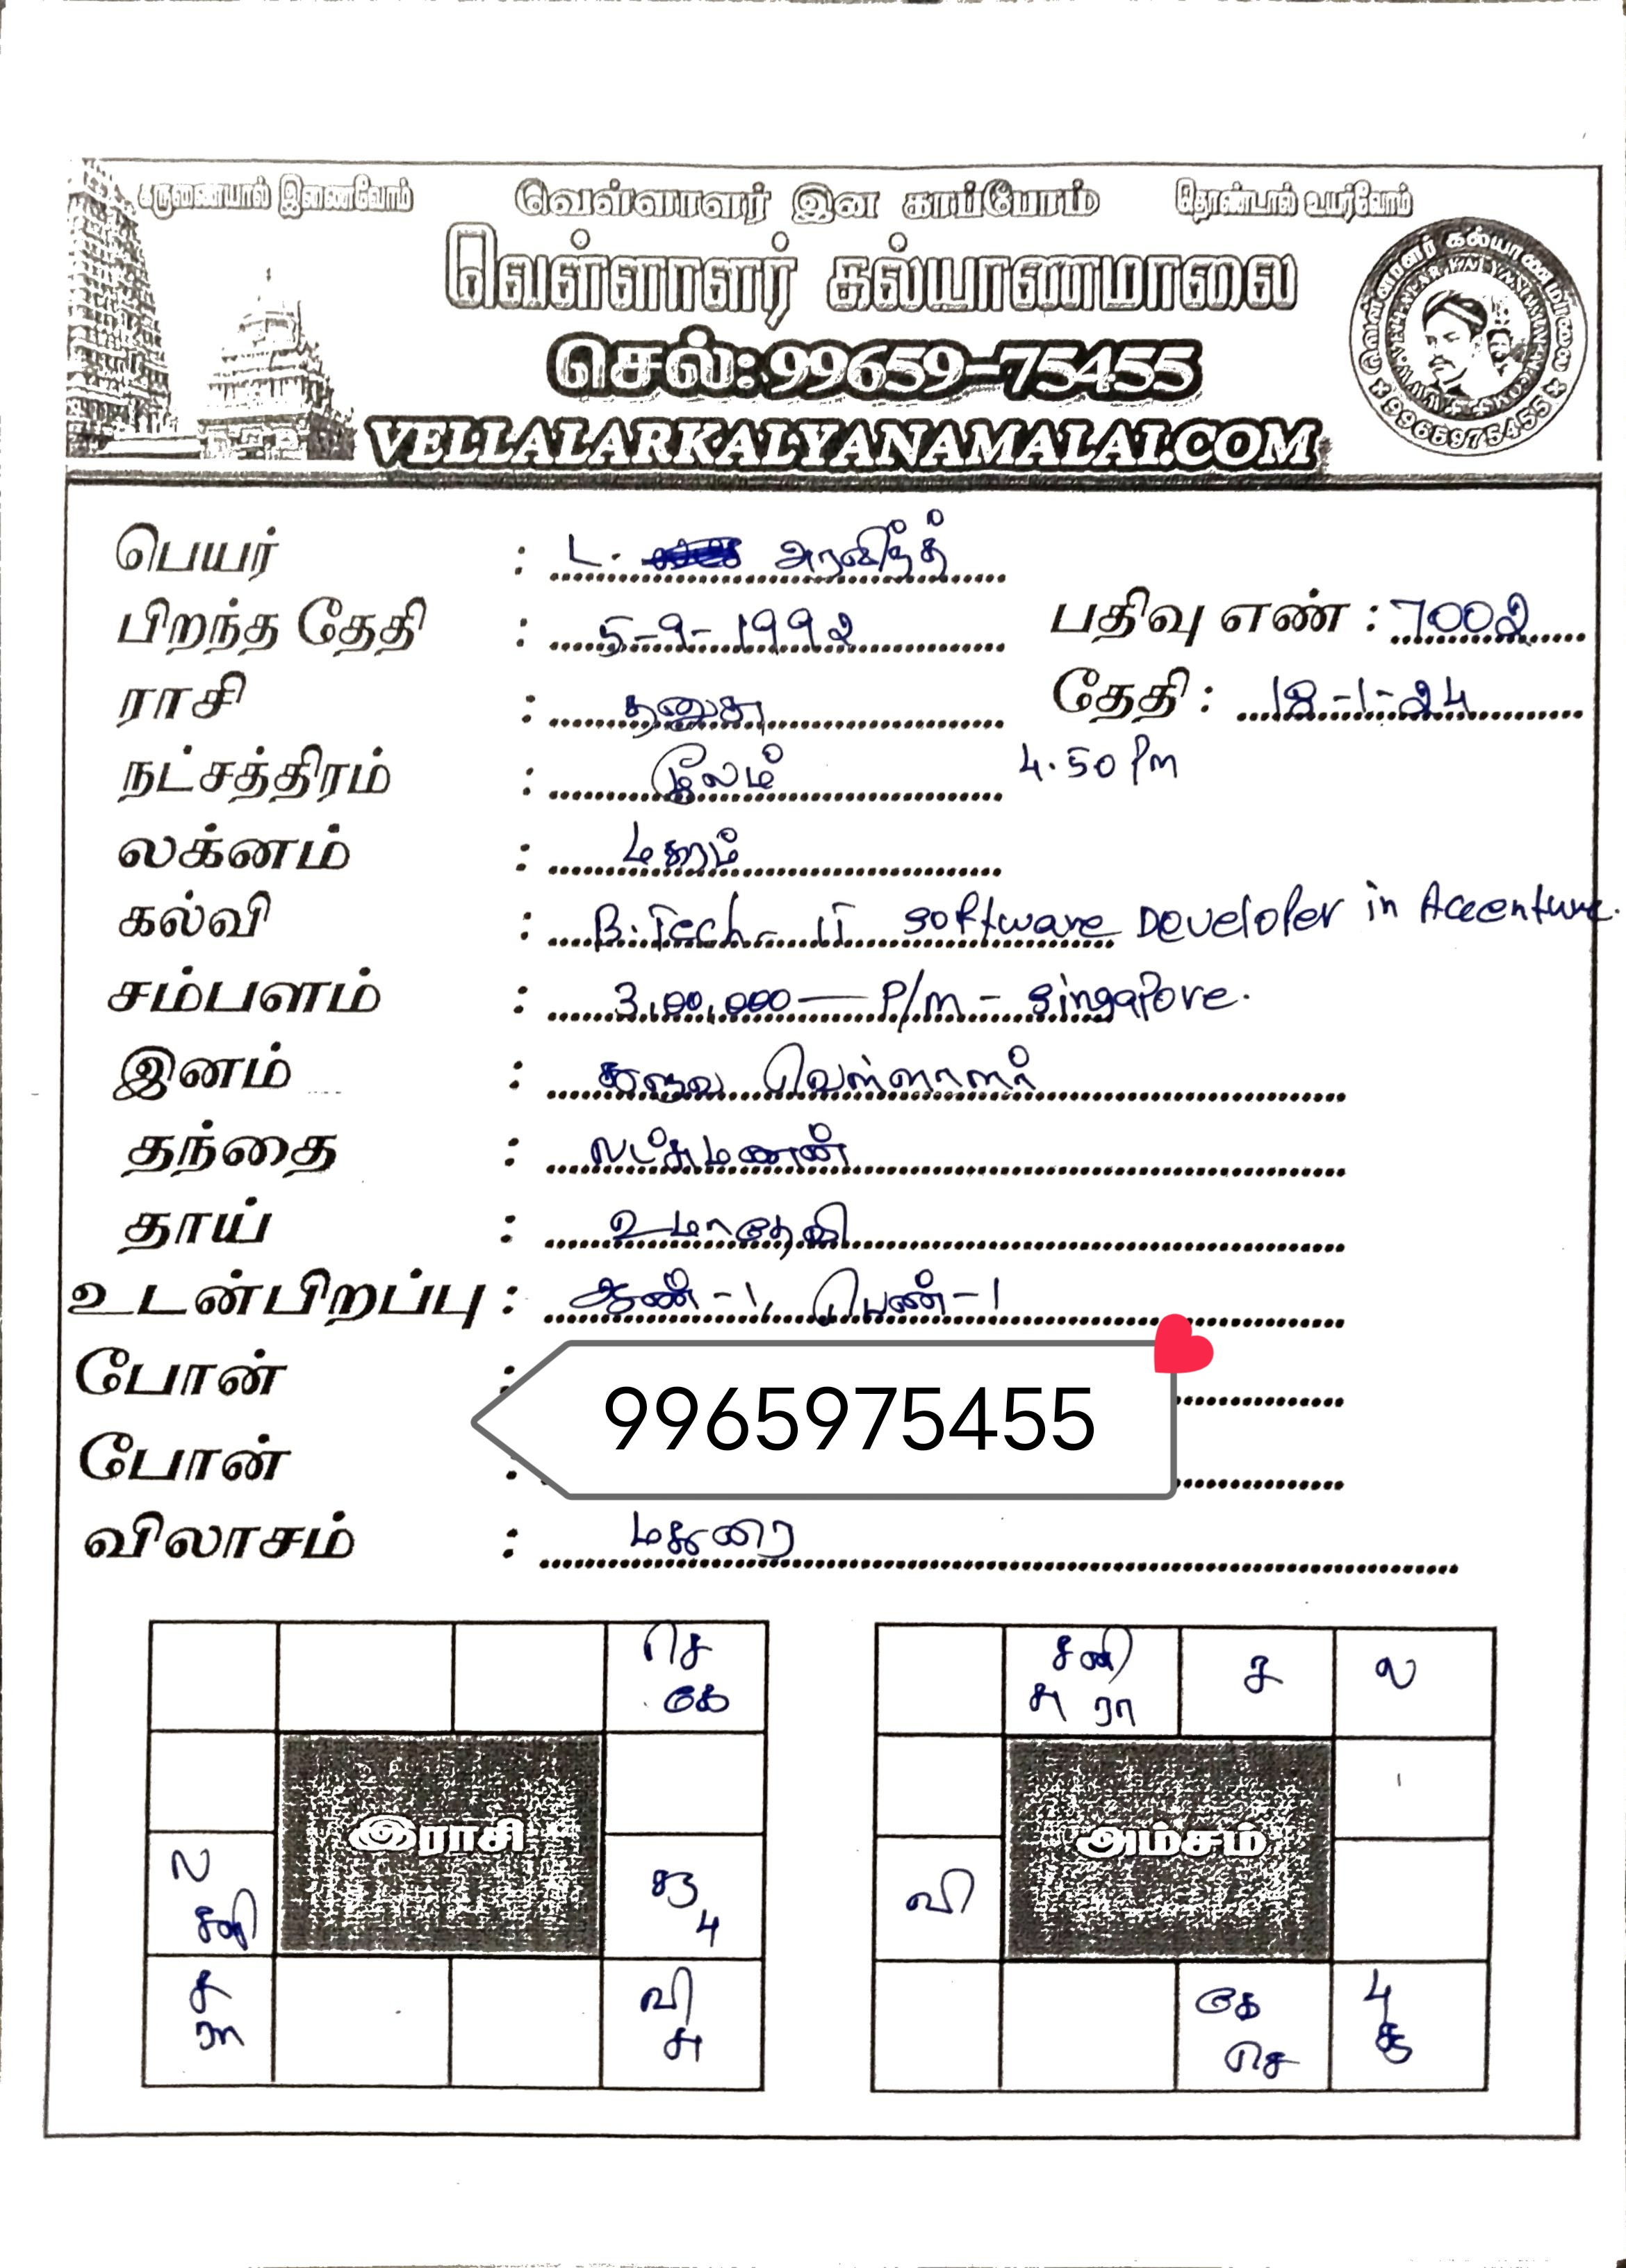 கருணையால் இணைவோம் வெள்ளாளர் இன காப்போம் தொண்டால் உயர்வோம்
வெள்ளாளர் கல்யாணமாலை
செல்:99659-75455
VELLALARKALYANAMALAI.COM
வெள்ளாளர் கல்யாணமாலை
9965975455
பெயர் : L. அரவிந்த்
பிறந்த தேதி : 5-9-1992 பதிவு எண் : 7002
ராசி : தனுசு தேதி : 18-1-24
நட்சத்திரம் : மூலம் 4.50 Pm
லக்னம் : மகரம்
கல்வி : B.Tech - IT Software Developer in Accenture.
சம்பளம் : 3,00,000 — P/m - Singapore.
இனம் : வெள்ளாளர்
தந்தை : லட்சுமணன்
தாய் : உமாதேவி
உடன்பிறப்பு : ஆண் - 1, பெண் - 1
போன் :
9965975455
போன் :
விலாசம் : மதுரை
செ
கே
ல
சனி
இராசி
சு
4
ச
ரா
வி
சு
சனி
சு ரா
ச
ல
வி
அம்சம்
கே
செ
4
கு